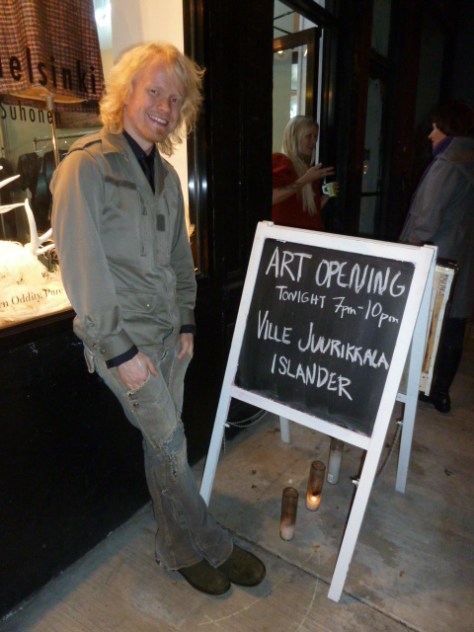 elsinki
Suhone
rn Oddity, Par
ART OPENING
TONIGHT 7pm-10pm
VILLE JUURIKKALA
ISLANDER